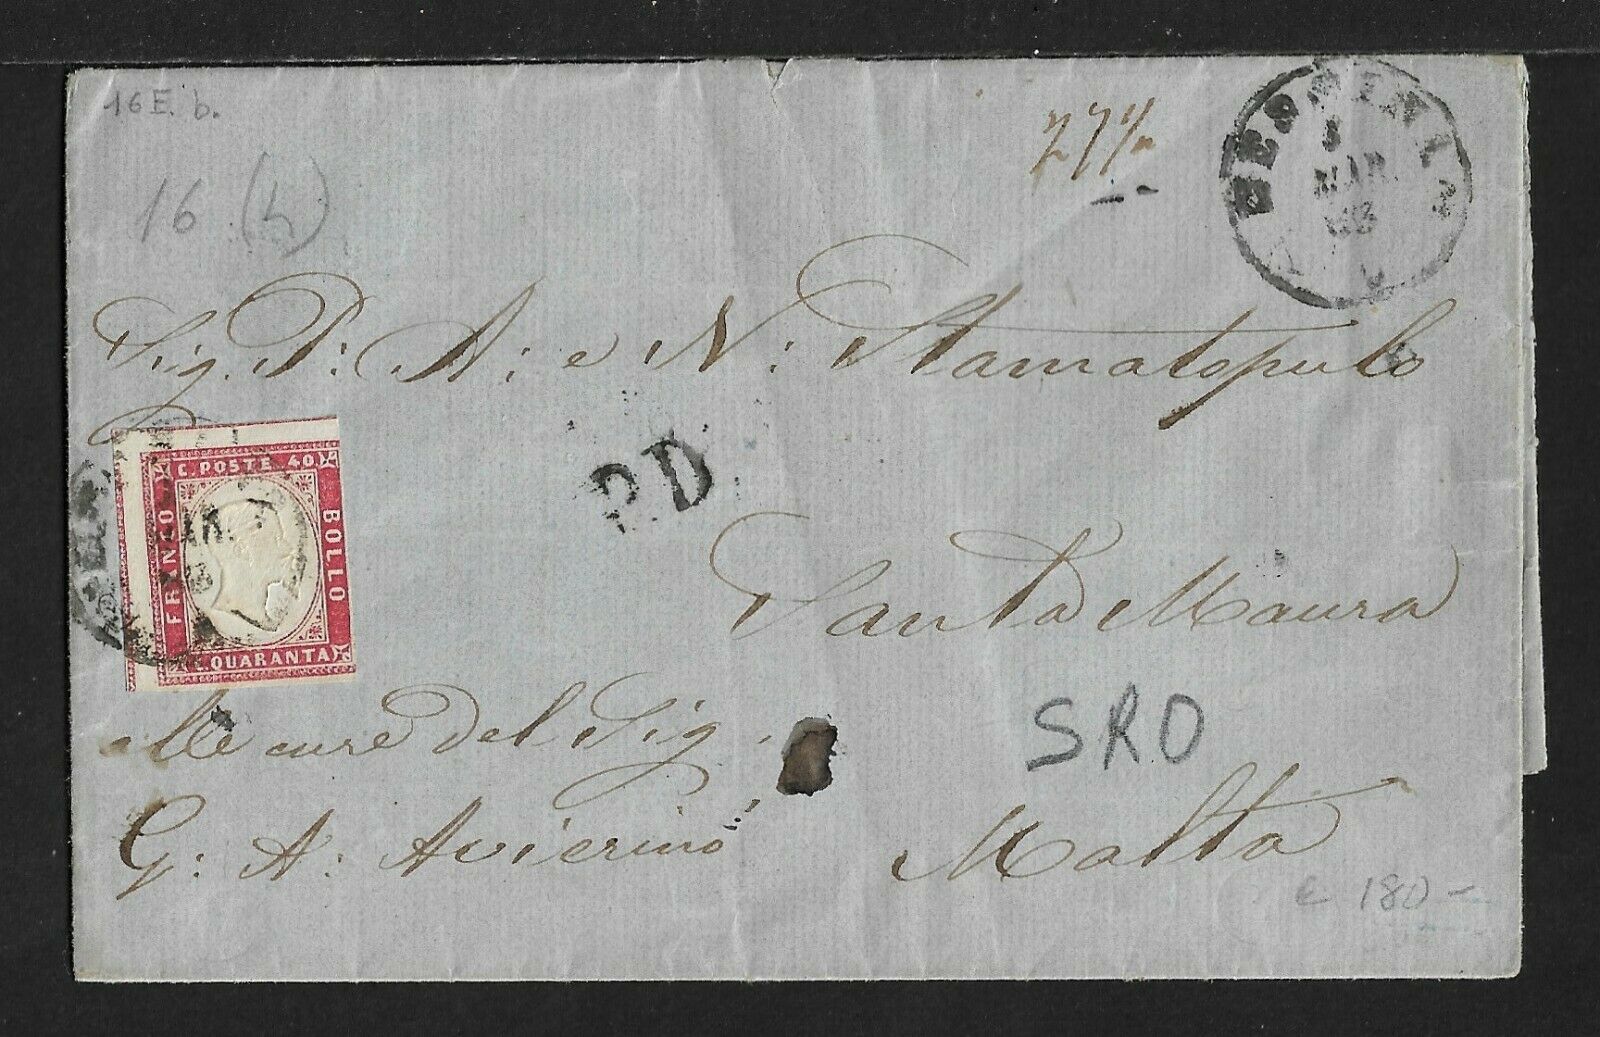 16 E. b.
16 (4)
27 1/2
MESSINA
MAR.
63
Sig. P: A: e N: Stamatopulo
P.D.
C. POSTE 40
FRANCO
BOLLO
C. QUARANTA
Santa Maura
alle cure del Sig.
SRO
G: A: Avierino
Malta
€ 180-